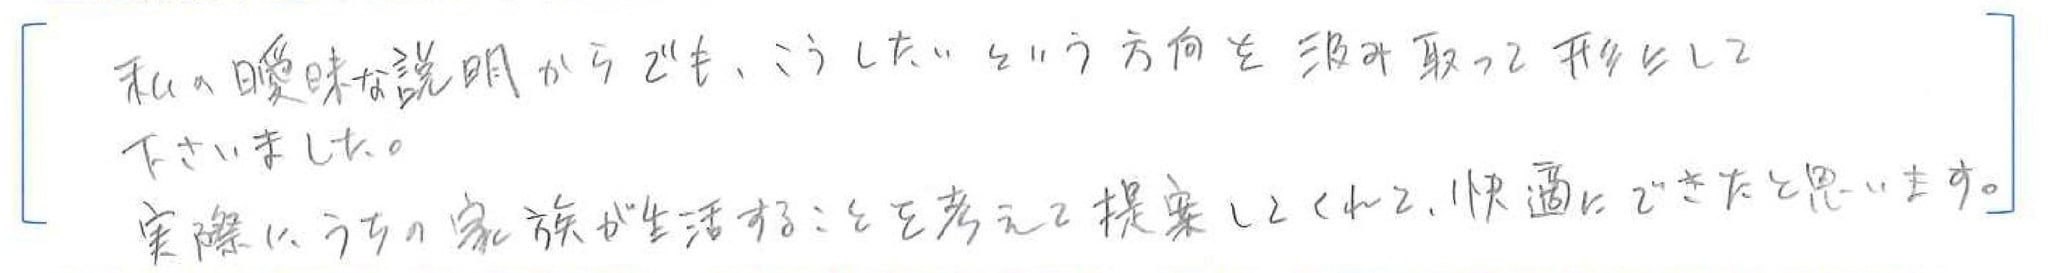 私の曖昧な説明からでも、こうしたいという方向を汲み取って形にして
下さいました。
実際に、うちの家族が生活することを考えて提案してくれて、快適にできたと思います。